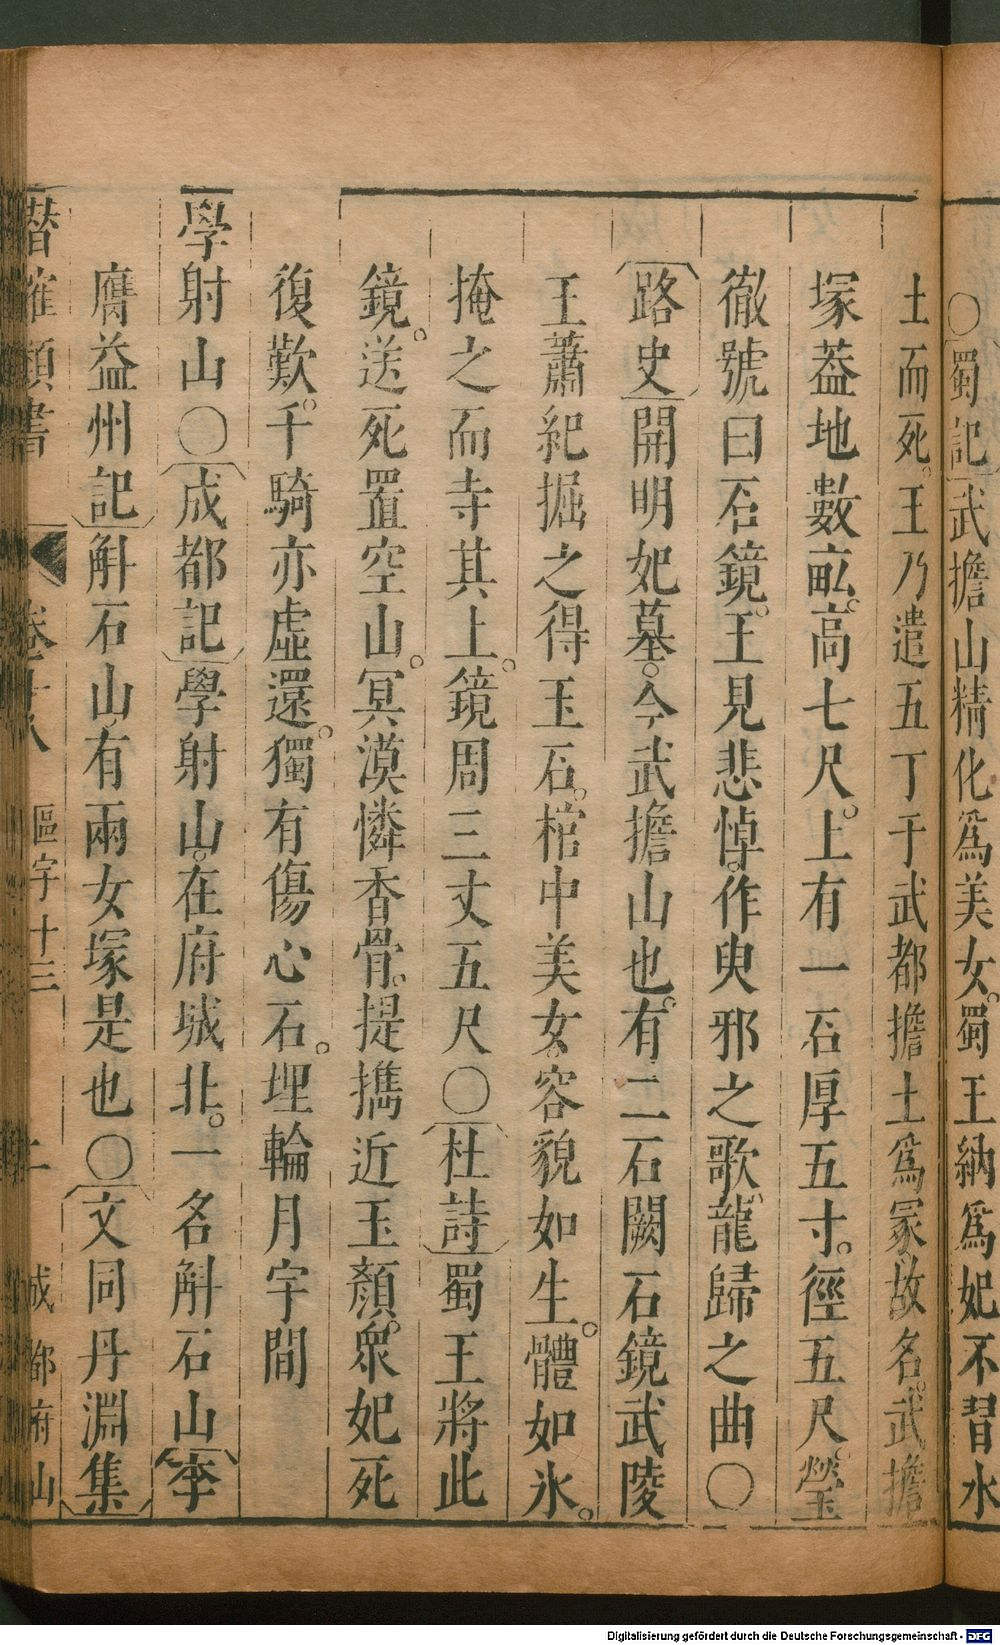 ○蜀記武擔山精化爲美女。蜀王納爲妃不習水
土而死。王乃遣五丁于武都擔土爲冢故名。武擔
塚葢地數畝。高七尺。上有一石厚五寸。徑五尺。瑩
徹號曰石鏡。王見悲悼。作臾邪之歌、龍歸之曲○
路史開明妃墓。今武擔山也。有二石闕石鏡武陵
王蕭紀掘之得玉石。棺中美女。容貌如生。體如氷。
掩之而寺其上。鏡周三丈五尺○杜詩蜀王將此
鏡。送死置空山。冥漠憐香骨。提攜近玉顏。衆妃死
復歎。千騎亦虛還。獨有傷心石。埋輪月宇間
學射山○成都記學射山。在府城北。一名斛石山李
膺益州記斛石山有兩女塚是也○文同丹淵集
潛確類書 卷二十八 區宇十三 二 成都府山
Digitalisierung gefördert durch die Deutsche Forschungsgemeinschaft - DFG